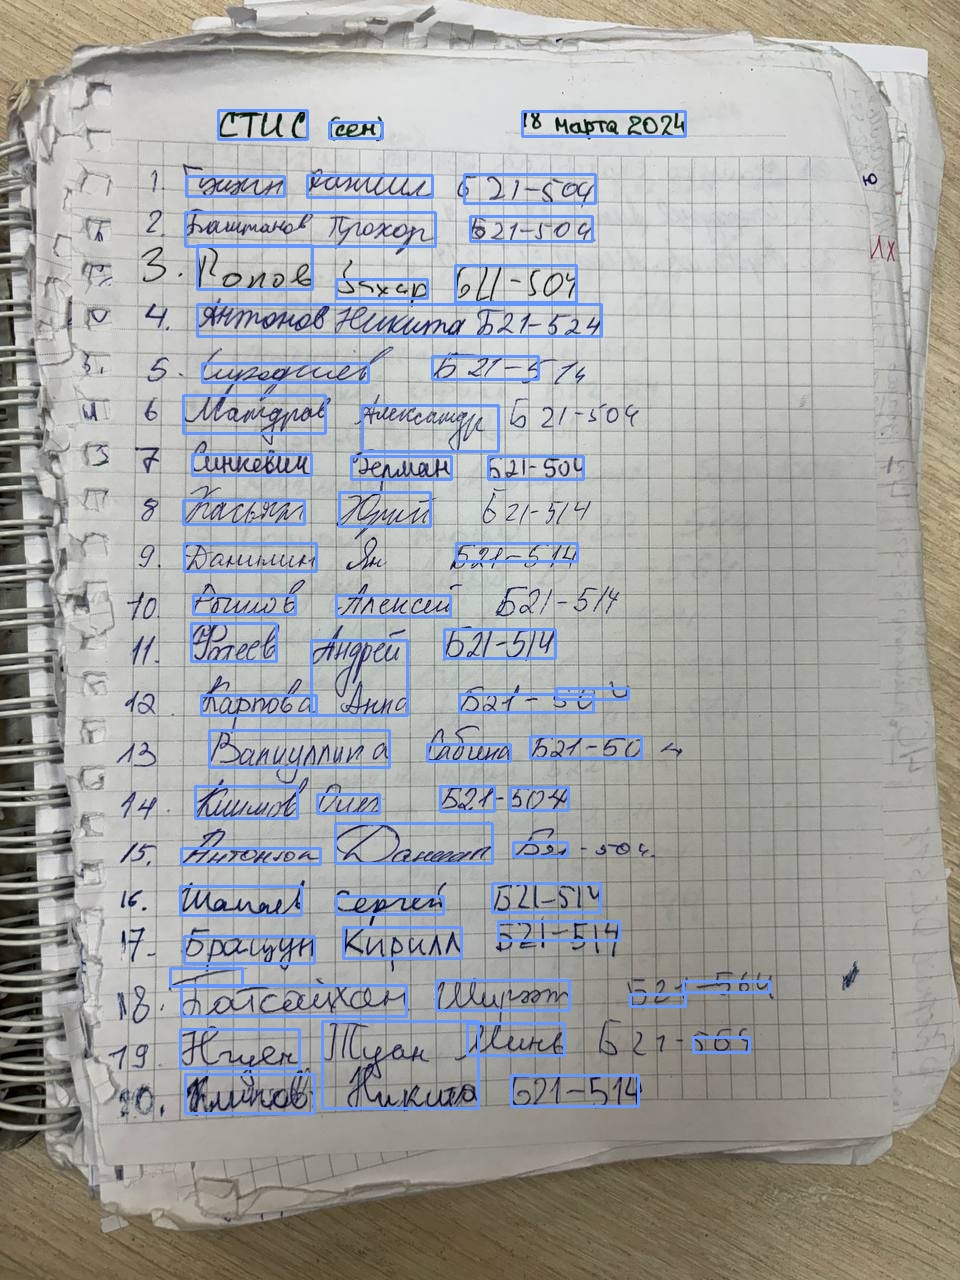 СТИС (сем) 18 марта 2024
1 Даниил Б21-504
2 Баштанов Прохор Б21-504
3. Попов Захар Б21-504
4. Антонов Никита Б21-524
5. Б21-514
6 Александр Б21-504
7 Синкевич Герман Б21-504
8 Касьян Юрий Б21-514
9. Данилин Ян Б21-514
10. Рылов Алексей Б21-514
11. Фатеев Андрей Б21-514
12. Карпова Анна Б21-504
13 Валиуллина Сабина Б21-504
14. Климов Олег Б21-504
15. Антонюк Даниил Б21-504.
16. Шамаев Сергей Б21-514
17. Бращун Кирилл Б21-514
18. Батсайхан Б21-564
19. Нгуен Туан Минь Б21-504
20. Климов Никита Б21-514